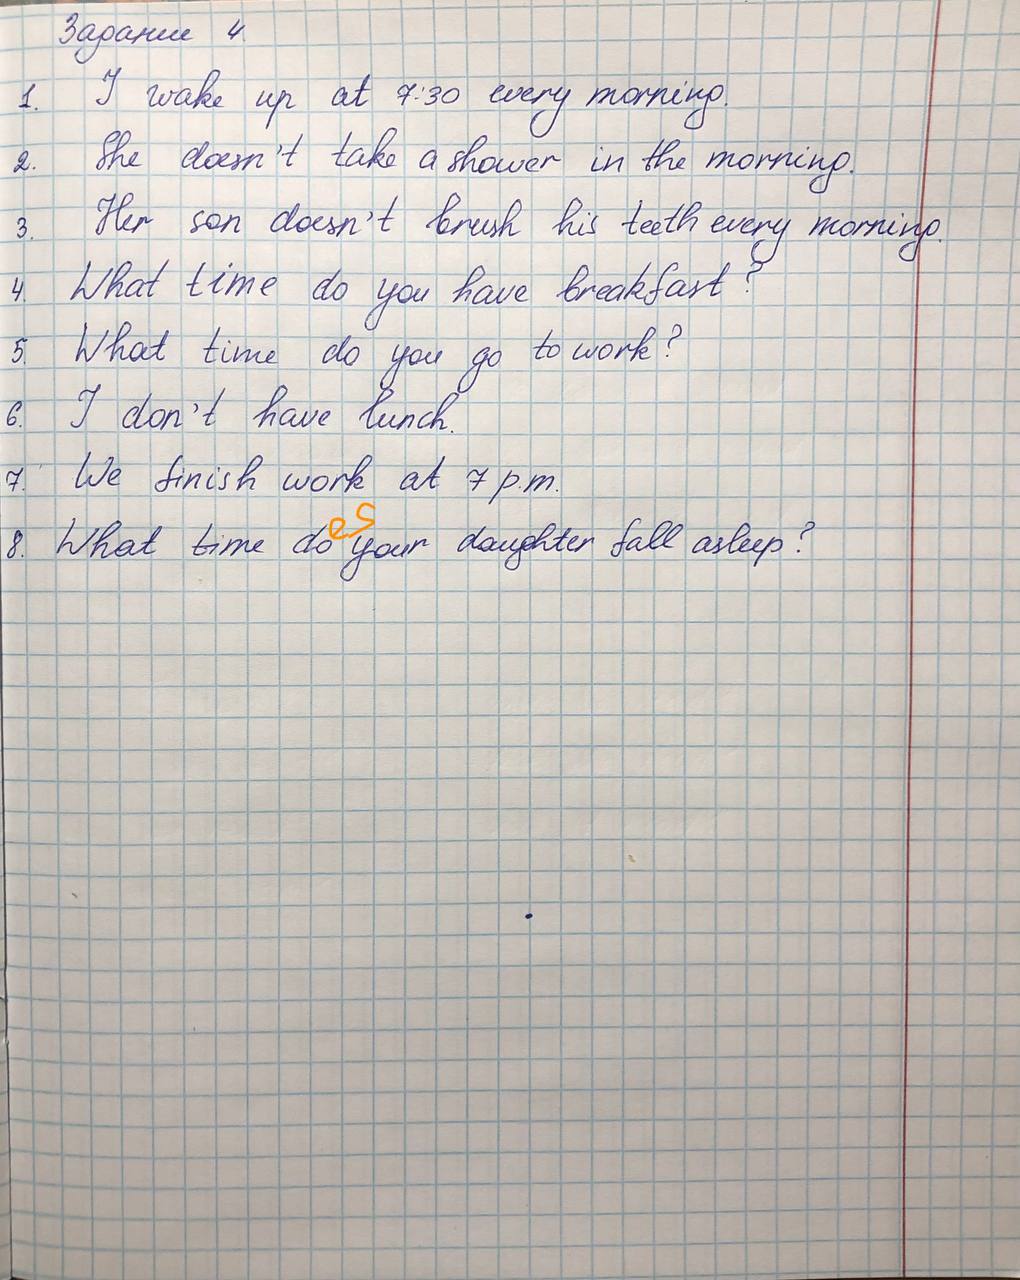 Задание 4
1. I wake up at 7:30 every morning.
2. She doesn't take a shower in the morning.
3. Her son doesn't brush his teeth every morning.
4. What time do you have breakfast?
5. What time do you go to work?
6. I don't have lunch.
7. We finish work at 7 p.m.
es
8. What time do your daughter fall asleep?